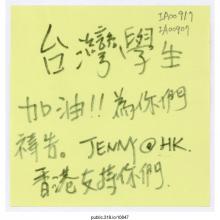 IA00917
IA00907
台灣學生
加油!!為你們
禱告。JENNY@HK.
香港支持你們.
public.318.io/10847